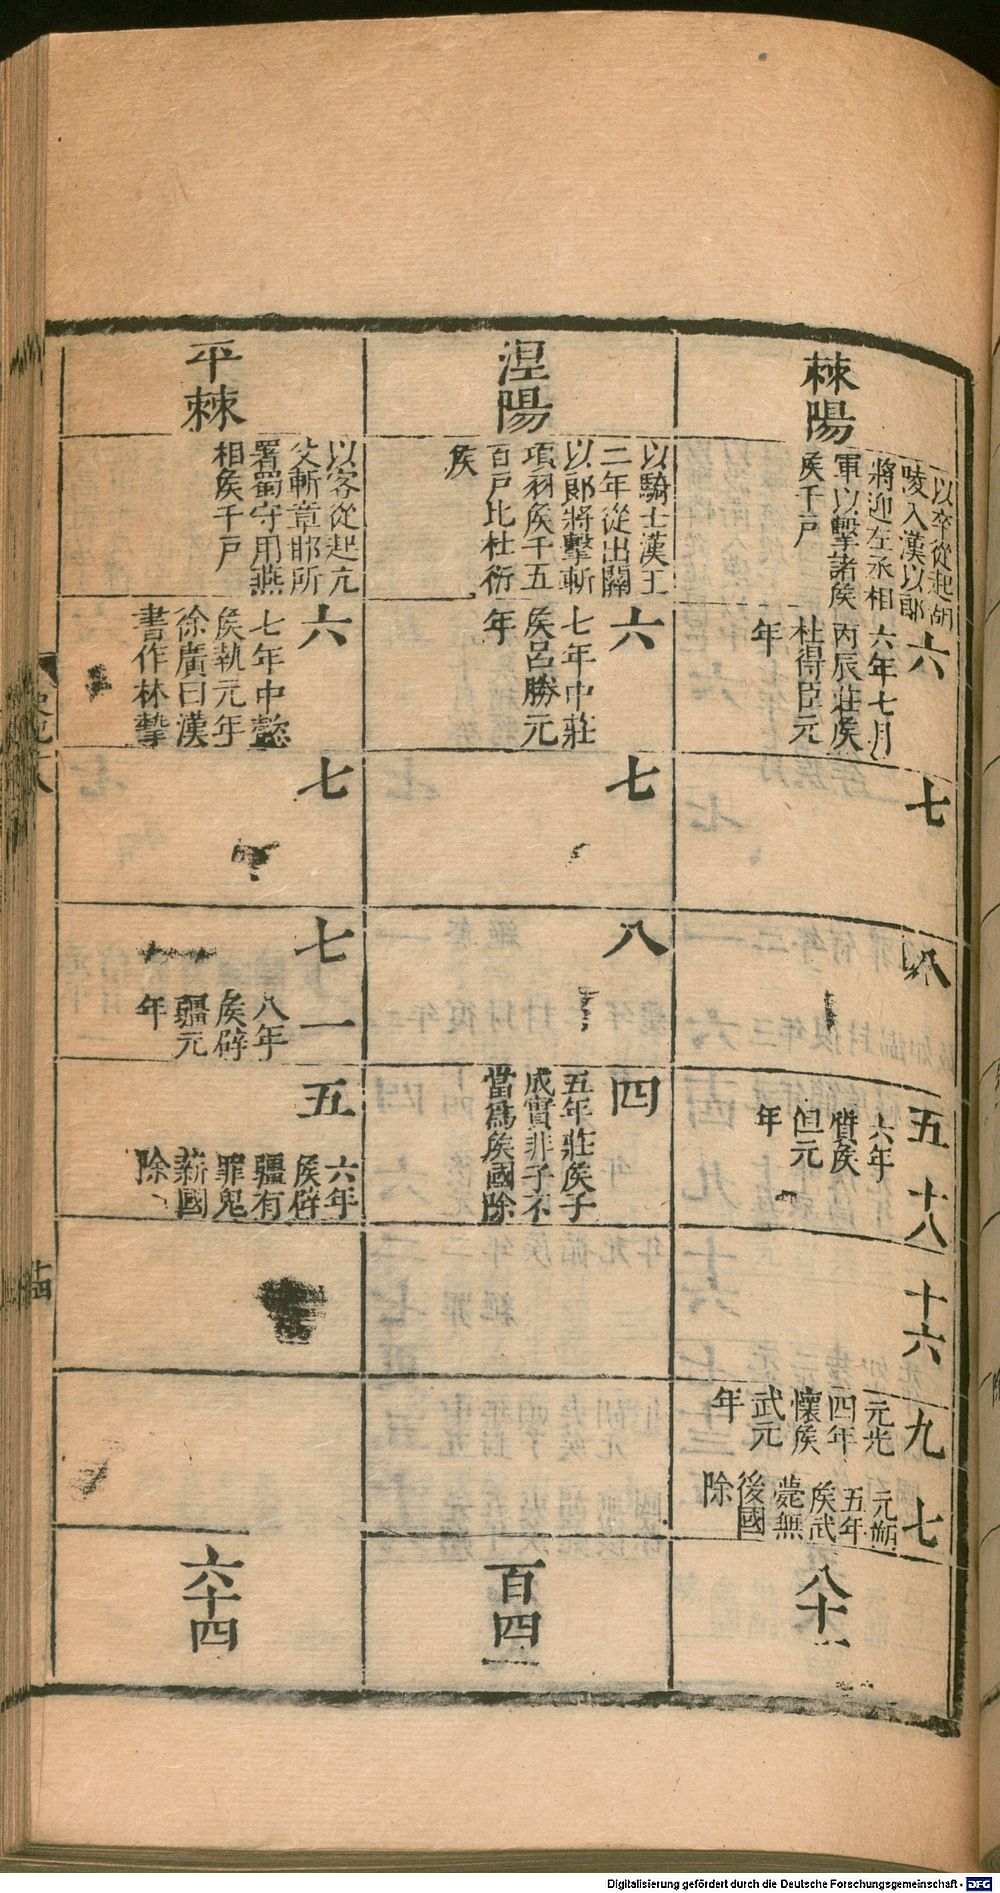 棘陽
以卒從起胡
陵入漢以郎
將迎左丞相
軍以擊諸侯
侯千戶
六
六年七月
丙辰莊侯
杜得臣元
年
七
八
五
六年
質侯
但元
年
十八
十六
九
元光
四年
懷侯
武元
年
七
元朔
五年
侯武
薨無
後國
除
八十一
涅陽
以騎士漢王
二年從出關
以郎將擊斬
項羽侯千五
百戶比杜衍
侯
六
七年中莊
侯呂勝元
年
七
八
四
五年莊侯子
成實非子不
當爲侯國除
百四
平棘
以客從起亢
父斬章邯所
署蜀守用燕
相侯千戶
六
七年中懿
侯執元年
徐廣曰漢
書作林摯
七
七
一
八年
侯辟
彊元
年
五
六年
侯辟
彊有
罪鬼
薪國
除
六十四
十四
Digitalisierung gefördert durch die Deutsche Forschungsgemeinschaft - DFG